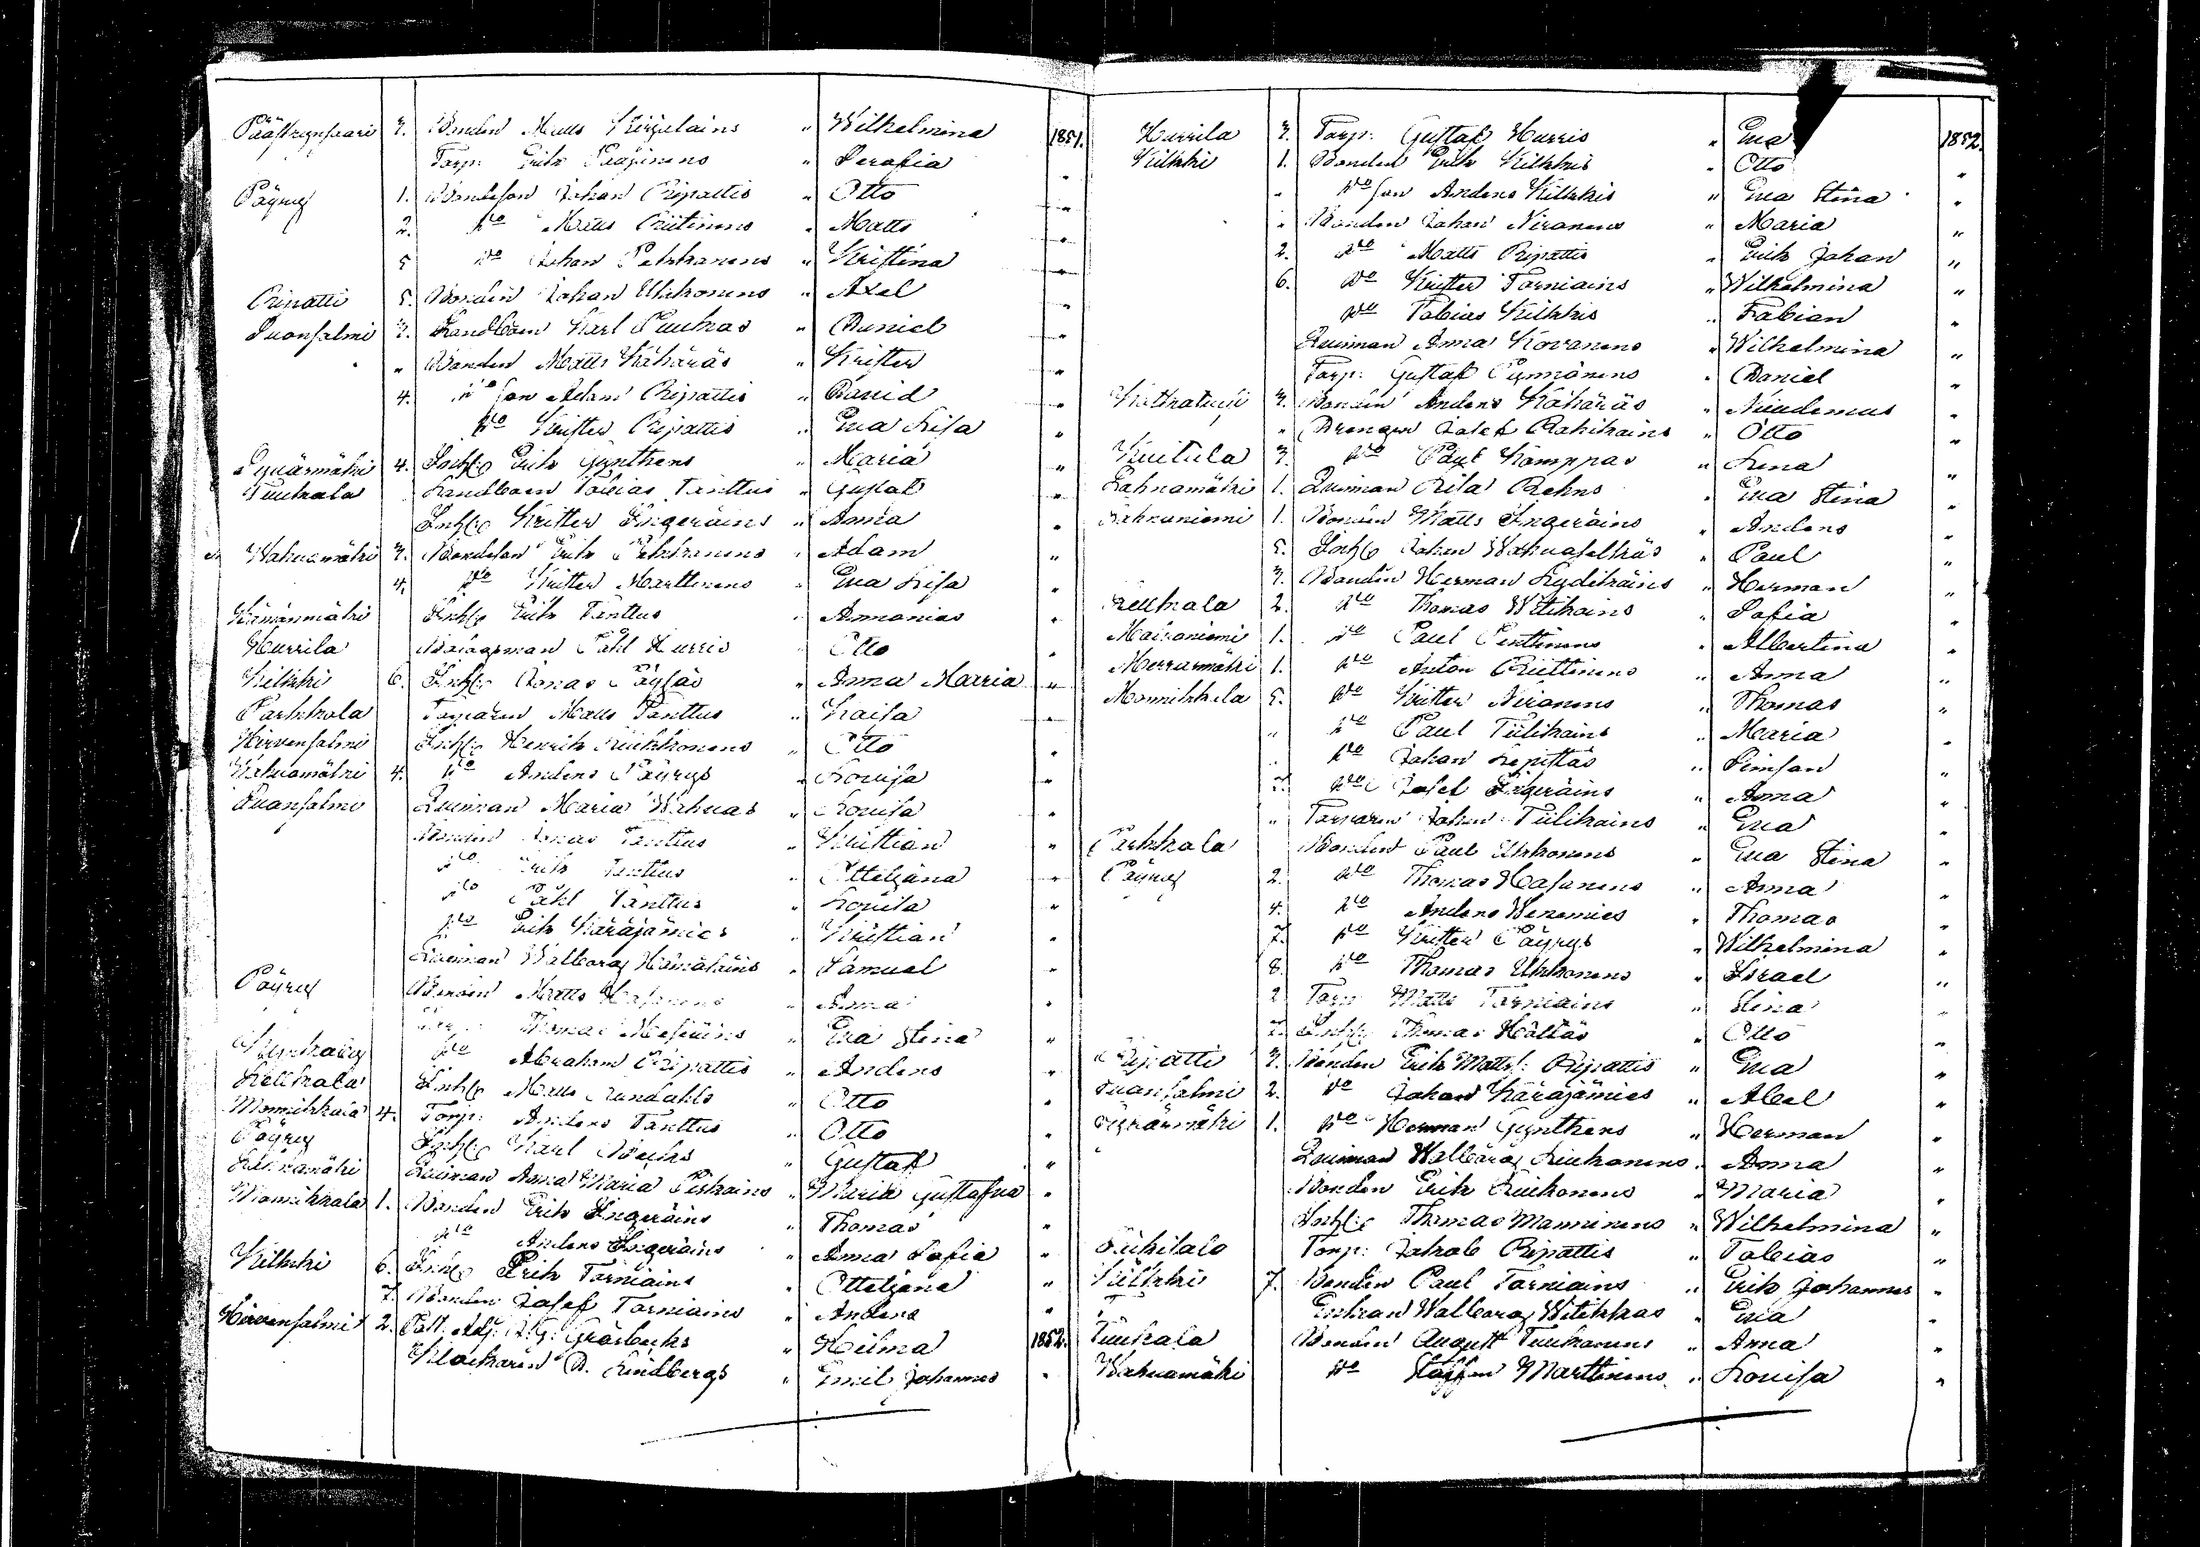 Pääskynsaari 3. Bonden Matts Kirjalains " Wilhelmina 1851.
Torp: Erik Paajanens " Serafia "
Päyry 1. Bondeson Johan Ripattis " Otto "
2. D:o Matts Riitinens " Matts "
5 D:o Johan Pekkanens " Kristina "
Ripatti 5. Bonden Johan Ukkonens " Axel "
Suonsalmi 3. Landboen Karl Puukas " Daniel "
" Bonden Matts Kähäräs " Krister "
4. D:o son Adam Ripattis " David "
D:o Krister Ripattis " Eva Lisa "
Syvärmäki 4. Inh: Erik Gynthers " Maria "
Tuukala Landboen Tobias Tanttus " Gustaf "
Inh: Krister Ingeräins " Anna "
Wahvamäki 3. Bondeson Erik Pekkanens " Adam "
4. D:o Krister Marttinens " Eva Lisa "
Hämänmäki Inh: Erik Tanttus " Annanias "
Hurrila Påhl Hurris " Otto "
Kilkki 6. Inh: Jonas Päyläs " Anna Maria "
Parkkola Torparen Matts Tanttus " Kaisa "
Hirvensalmi Inh: Henrik Liukkonens " Otto "
Wahvamäki 4. D:o Anders Päyrys " Lovisa "
Suonsalmi Qvinnan Maria Wahvas " Lovisa "
Bonden Jonas Tanttus " Kristian "
D:o Erik Tanttus " Ottiliana "
D:o Påhl Tanttus " Lovisa "
D:o Erik Käräjämies " Kristian "
Qvinnan Walborg Hämäläins " Samuel "
Päyry Bonden Matts Hasanens " Anna "
Thomas " Eva Stina "
D:o Abraham Ripattis " Anders "
Lellkala Inh: Matts Sundahls " Otto "
Monnikkala 4. Torp: Anders Tanttus " Otto "
Päyry Inh: Karl " Gustaf "
Lahnamäki Qvinnan Anna Maria Piskains " Maria Gustafva "
Monnikkala 1. Bonden Erik Ingeräins " Thomas "
D:o Anders Ingeräins " Anna Sofia "
Kilkki 6. Inh: Erik Torniains " Ottiliana "
7. Bonden Josef Torniains " Anders "
Hirvensalmi 2. Patt: Adj: A.G: Gråsbecks " Hilma 1852.
Klockaren D. Lindbergs " Emil Johannes "
Hurrila 3. Torp: Gustaf Hurris " Eva 1852.
Kilkki 1. Bonden Erik Kilkkis " Otto "
" D:o son Anders Kilkkis " Eva Stina "
" Bonden Johan Niranens " Maria "
2. D:o Matts Ripattis " Erik Johan "
6. D:o Krister Torniains " Wilhelmina "
D:o Tobias Kilkkis " Fabian "
Qvinnan Anna Kovanens " Wilhelmina "
Torp: Gustaf Pynnönens " Daniel "
3. Bonden Anders Kähäräs " Nicodemus "
" Drengen Josef Rahikains " Otto "
Kuitula 3. D:o Paul Kamppas " Lena "
Lahnamäki 1. Qvinnan Rehns " Eva Stina "
Lahnaniemi 1. Bonden Matts Ingeräins " Anders "
5. Inh: Johan Wahvaselkäs " Paul "
3. Bonden Herman Lydikäins " Herman "
Lellkala 2. D:o Thomas Witikains " Sofia "
Maivaniemi 1. D:o Paul Penttinens " Albertina "
Merrasmäki 1. D:o Anton Riittinens " Anna "
Monnikkala 5. D:o Krister Niranens " Thomas "
" D:o Paul Tiilikains " Maria "
" D:o Johan Lepistäs " Simson "
7. D:o Josef Ingeräins " Anna "
" Torparen Johan Tiilikains " Eva "
Parkkala Bonden Paul Ukkonens " Eva Stina "
Päyry 2. D:o Thomas Hasanens " Anna "
4. D:o Anders Wenemies " Thomas "
7. D:o Krister Päyrys " Wilhelmina "
8. D:o Thomas Ukkonens " Israel "
2 Torp: Matts Torniains " Stina "
7. Inh: Thomas Hältäs " Otto "
Ripatti 3. Bonden Erik Matts: Ripattis " Eva "
Suonsalmi 2. D:o Johan Käräjämies " Abel "
Syvärmäki 1. D:o Herman Gynthers " Herman "
Qvinnan Walborg Liukonens " Anna "
Bonden Erik Liukonens " Maria "
Inh: Thomas Manninens " Wilhelmina "
Torp: Jakob Ripattis " Tobias "
Kilkki 7. Bonden Paul Torniains " Erik Johannes "
Enkan Walborg Witikkas " Eva "
Tuukala Bonden August Tuukanens " Anna "
Wahvamäki D:o Staffan Marttinens " Lovisa "